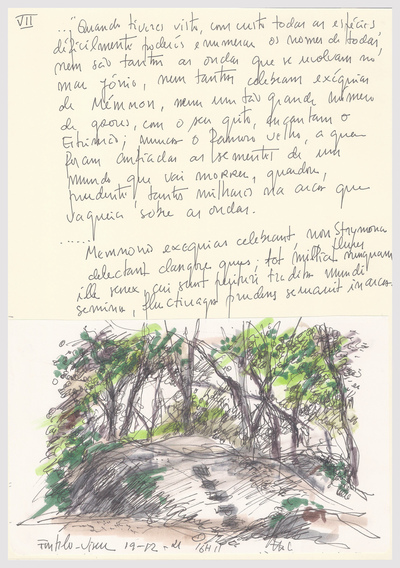 VII
..." Quando tiveres visto, com custo todas as espécies
dificilmente poderás enumerar os nomes de todas,
nem são tantas as ondas que se revolvem no
mar Jónio, nem tantos celebram exéquias
de Mémnon, nem um tão grande número
de grous, com o seu grito,
nunca o velho, a quem
foram confiadas as sementes de um
mundo que vai morrer, guardou,
prudente, tantos milhares na arca que
vagueia sobre as ondas.
......
Memnonis exequias celebrant, non Strymona
delectant clangore grues; tot millia nunquam
ille senex, cui sunt perituri tradita mundi
semina, fluctivaga prudens servavit in arca.
Fontelo-Viseu 19-02-